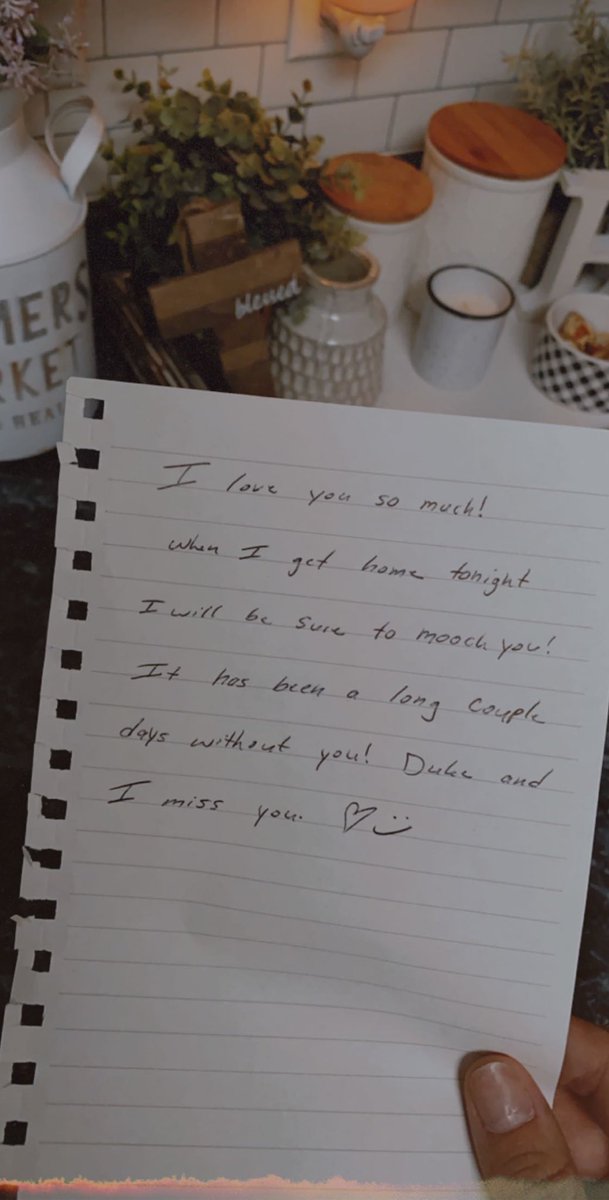 MERS
RKET
blessed
I love you so much!
When I get home tonight
I will be sure to mooch you!
It has been a long couple
days without you! Duke and
I miss you. ♡ :)